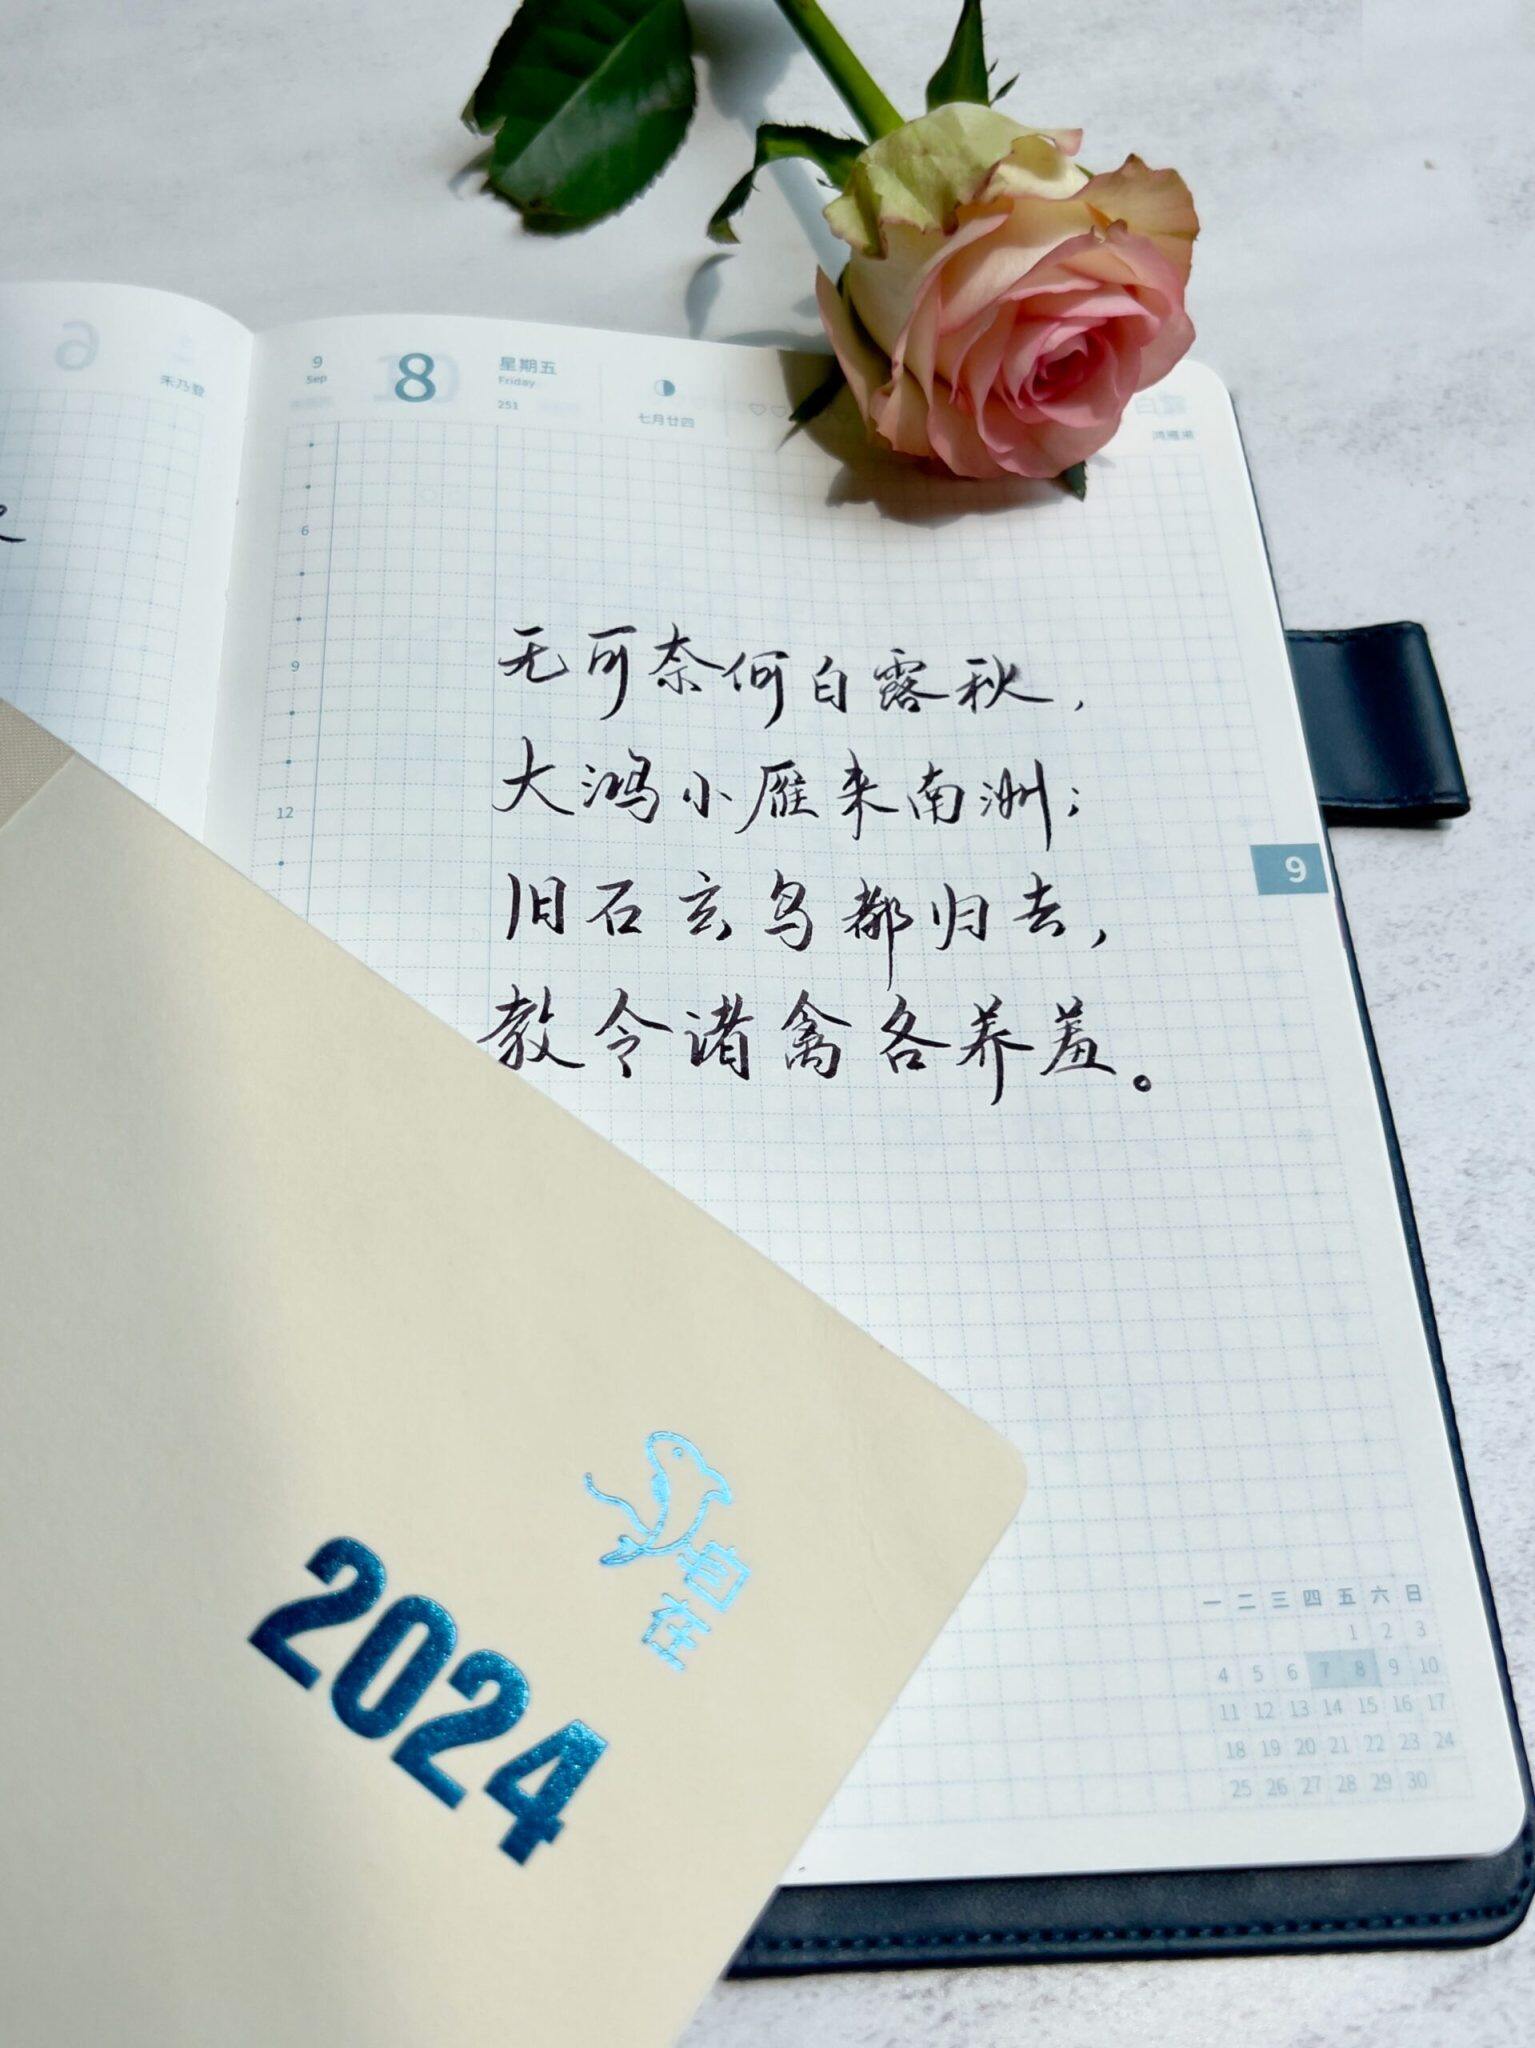 6
禾乃登
9
Sep
8
星期五
Friday
251
七月廿四
白露
鸿雁来
6
9
12
无可奈何白露秋，
大鸿小雁来南洲；
旧石玄鸟都归去，
教令诸禽各养羞。
9
自在
2024
一 二 三 四 五 六 日
1 2 3
4 5 6 7 8 9 10
11 12 13 14 15 16 17
18 19 20 21 22 23 24
25 26 27 28 29 30